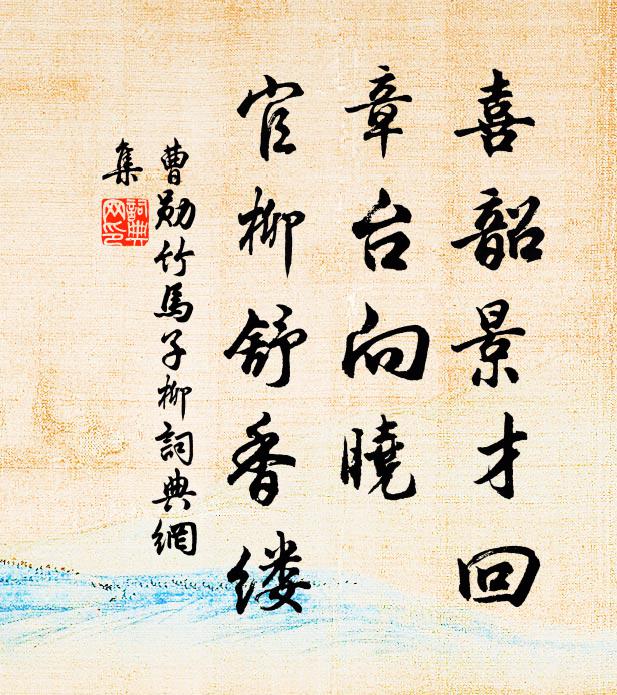 喜韶景才回
章台向曉
官柳舒香缕
曹勋竹馬子柳詞典網
集
詞典
网印